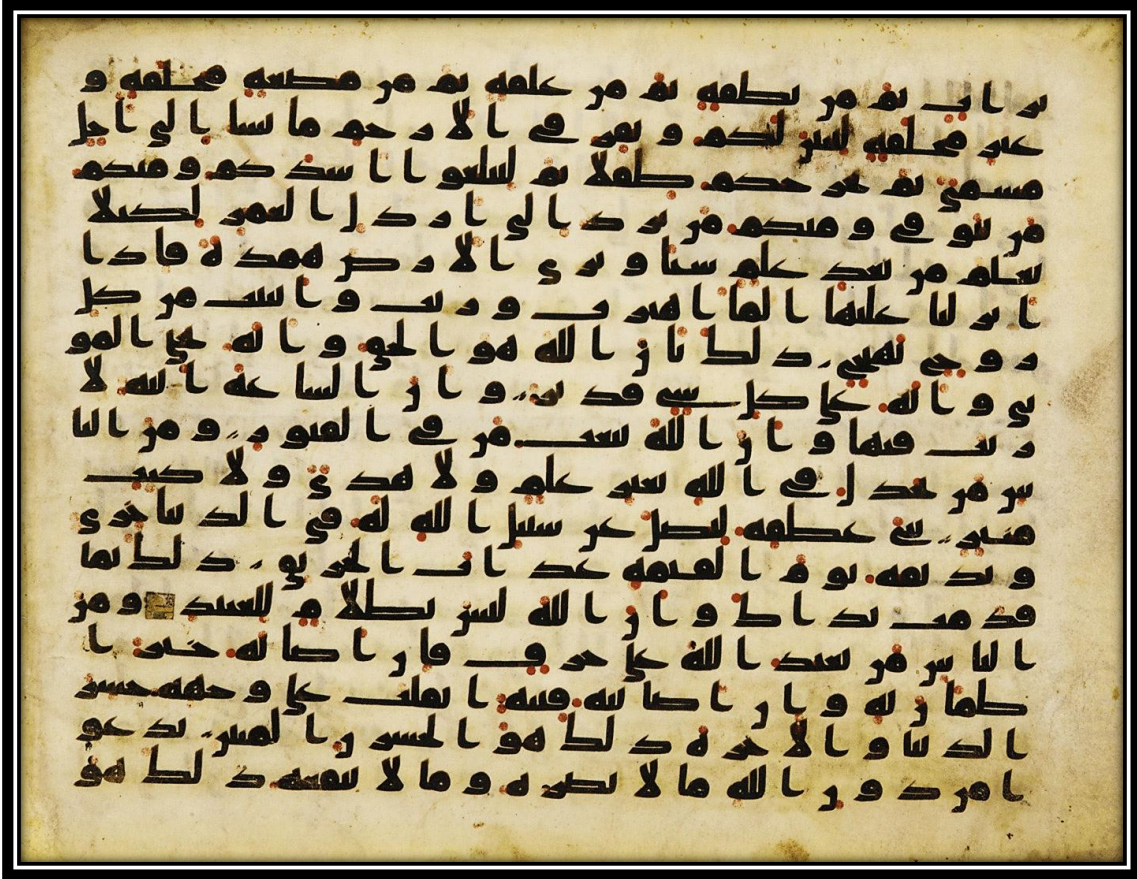 تراب ثم من نطفة ثم من علقة ثم من مضغة مخلقة و
غير مخلقة لنبين لكم ونقر في الارحم ما نشا الى اجل
مسمى ثم نخرجكم طفلا ثم لتبلغوا اشدكم ومنكم
من يتوفى ومنكم من يرد الى ارذل العمر لكيلا
يعلم من بعد علم شيئا وترى الارض همدة فاذا
انزلنا عليها الما اهتزت وربت وانبتت من كل
زوج بهيج ذلك بان الله هو الحق وانه يحي المو
تى وانه على كل شي قدير وان الساعة اتية لا
ريب فيها وان الله يبعث من في القبور ومن النا
س من يجدل في الله بغير علم ولا هدى ولا كتب
منير ثني عطفه ليضل عن سبيل الله له في الدنيا خزى
ونذيقه يوم القيمة عذاب الحريق ذلك بما
قدمت يداك وان الله ليس بظلام للعبيد ومن
الناس من يعبد الله على حرف فان اصابه خير ا
طمان به وان اصابته فتنة انقلب على وجهه خسر
الدنيا والاخرة ذلك هو الخسرن المبين يدعو
ا من دون الله ما لا يضره وما لا ينفعه ذلك هو